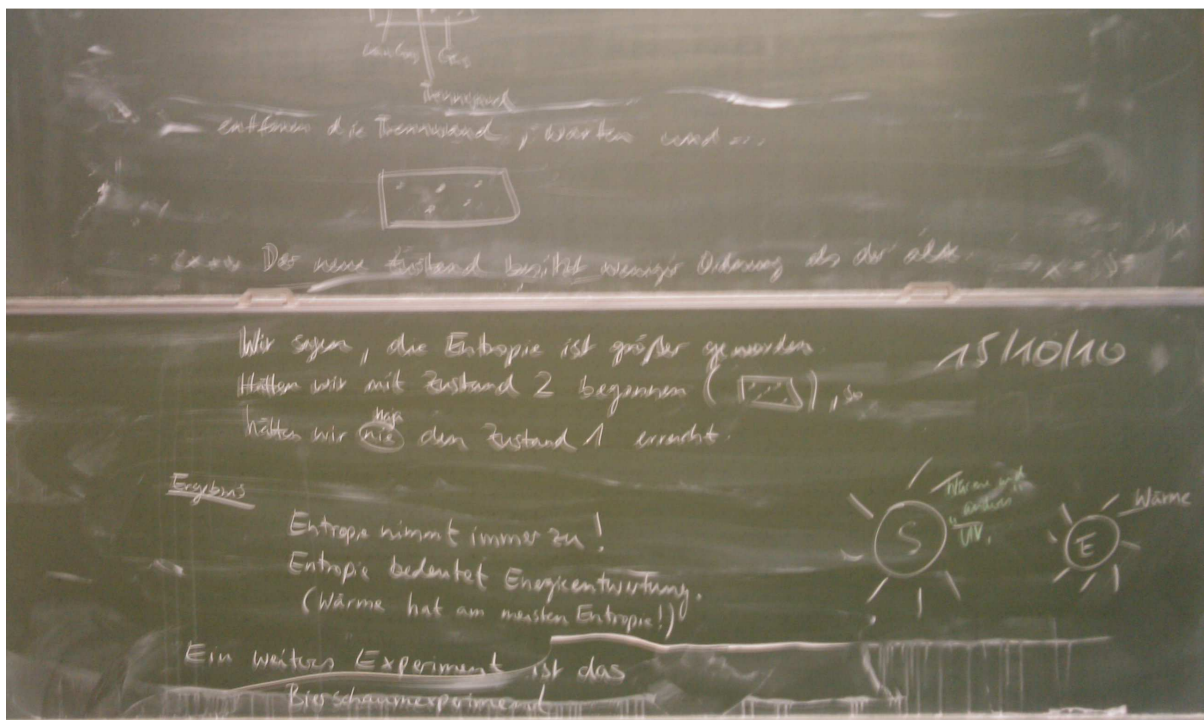 Gas
Trennwand
entfernen die Trennwand, warten und ...
Der neue Zustand besitzt weniger Ordnung als der alte.
Wir sagen, die Entropie ist größer geworden.
15/10/10
Hätten wir mit Zustand 2 begonnen ( ), so
naja
hätten wir nie den Zustand 1 erreicht.
Ergebnis
Entropie nimmt immer zu!
Entropie bedeutet Energieentwertung.
(Wärme hat am meisten Entropie!)
S
Wärme
UV.
E
Wärme
Ein weiteres Experiment ist das
Bierschaumexperiment